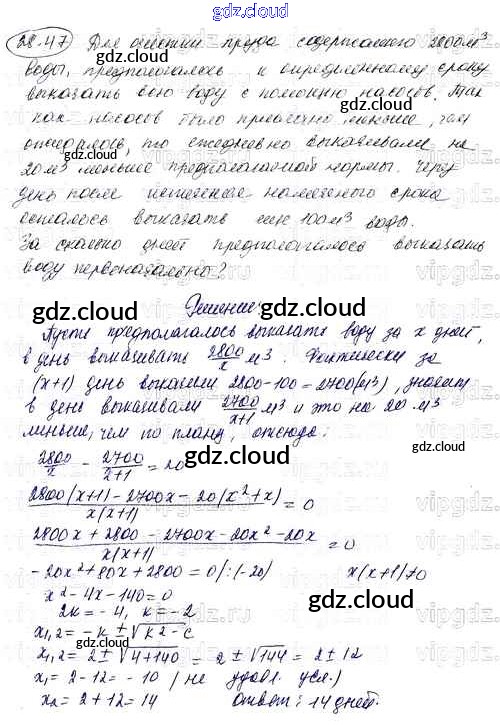 gdz.cloud
28.47 Для очистки пруда содержащего 2800 м³
воды, предполагалось к определенному сроку
выкачать всю воду с помощью насосов. Так
как насосов было привезено меньше, чем
ожидалось, то ежедневно выкачивали на
20 м³ меньше предполагаемой нормы. Через
день после истечения намеченного срока
осталось выкачать еще 100 м³ воды.
За сколько дней предполагалось выкачать
воду первоначально?
Решение:
Пусть предполагалось выкачать воду за x дней,
в день выкачивать 2800/x м³. Фактически за
(x+1) день выкачали 2800-100=2700(м³), значит
в день выкачивали 2700/x+1 м³ и это на 20 м³
меньше, чем по плану, отсюда:
2800/x - 2700/x+1 = 20
2800(x+1)-2700x-20(x²+x)/x(x+1) = 0
2800x+2800-2700x-20x²-20x/x(x+1) = 0
-20x²+80x+2800=0 /:(-20) x(x+1)≠0
x²-4x-140=0
2k=-4, k=-2
x1,2=-k±√k²-c
x1,2=2±√4+140=2±√144=2±12
x1=2-12=-10 (не удовл. усл.)
x2=2+12=14 Ответ: 14 дней.